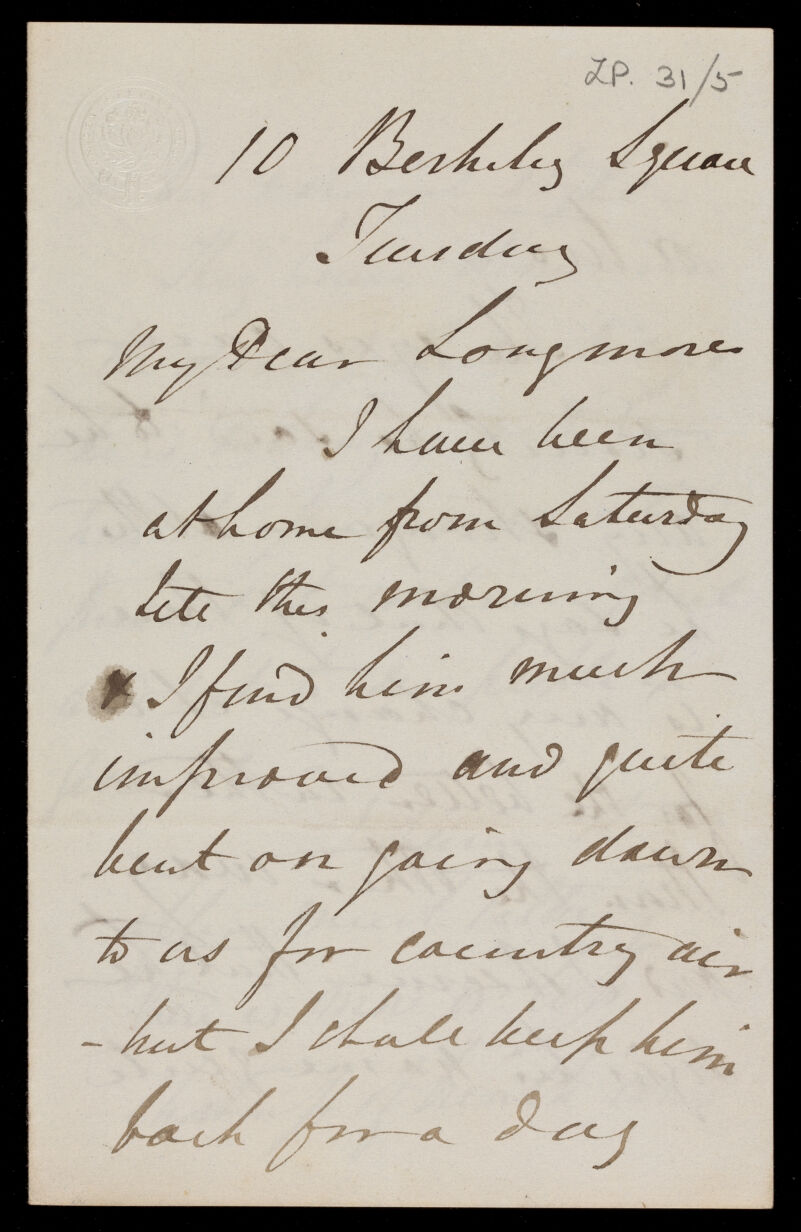 LP. 31/5
10 Berkeley Square
Tuesday
My Dear Longmore
I have been
at home from Saturday
late this morning
& I find him much
improved and quite
bent on going down
to us for country air
- but I shall keep him
back for a day